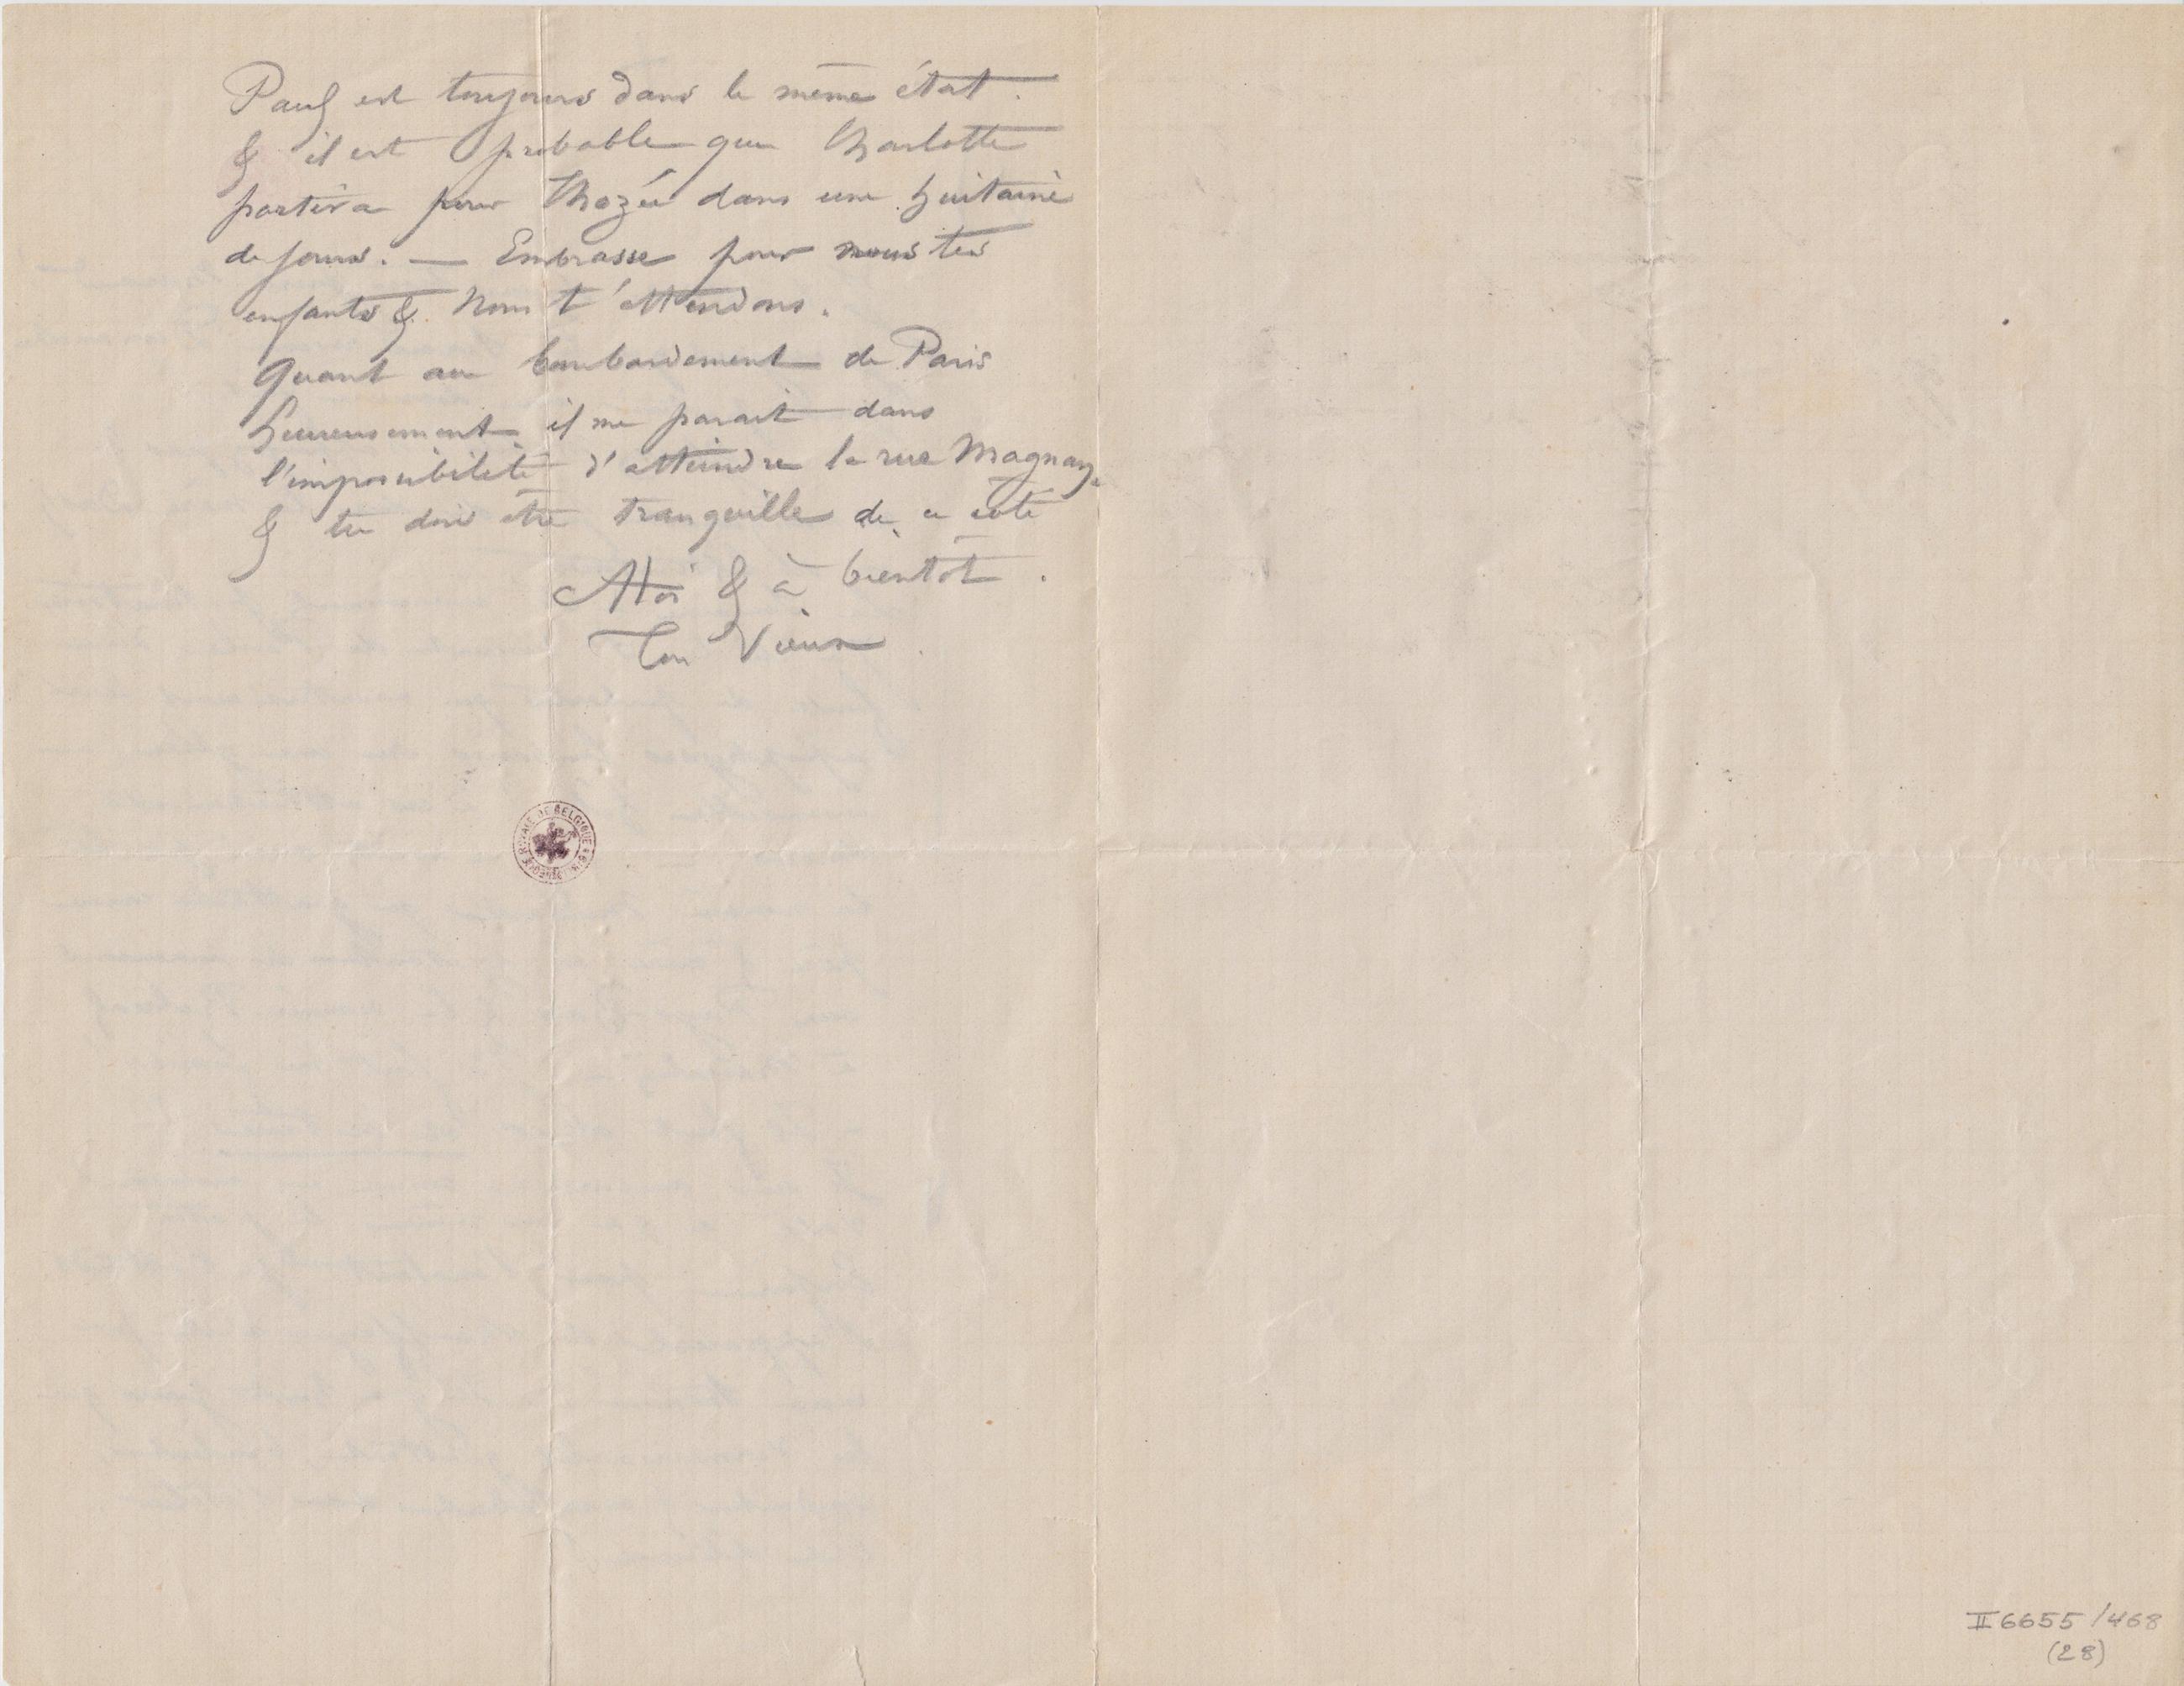 Paul est toujours dans le même état.
& il est probable que Charlotte
partira pour Thozée dans une huitaine
de jours. — Embrasse pour nous tes
enfants & Nous t'attendons.
Quant au bombardement de Paris
heureusement il me parait dans
l'impossibilité d'atteindre la rue Magnan,
& tu dois être tranquille de ce coté
A toi & à bientôt.
Ton Vieux.
ROYALE DE BELGIQUE
II 6655/468
(28)